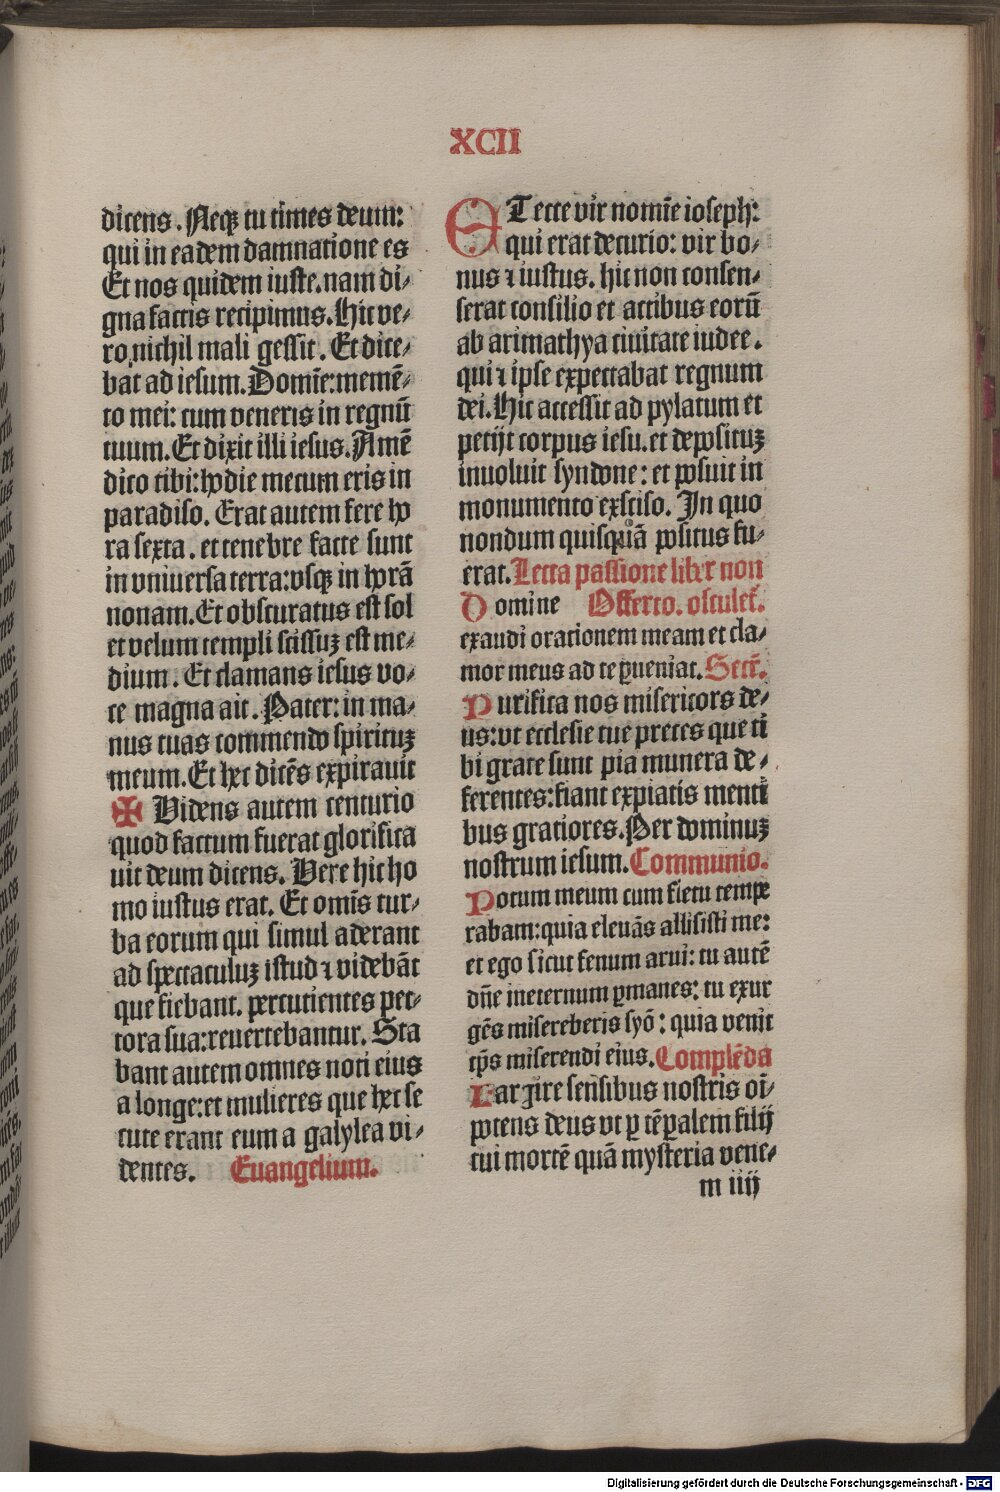 XCII
dicens. Neqꝫ tu times deum:
qui in eadem damnatione es
Et nos quidem iuste. nam di⸗
gna factis recipimus. Hic ve⸗
ro nichil mali gessit. Et dice⸗
bat ad iesum. Domīe: memē⸗
to mei: cum veneris in regnū
tuum. Et dixit illi iesus. Amē
dico tibi: hodie mecum eris in
paradiso. Erat autem fere ho
ra sexta. et tenebre facte sunt
in vniuersa terra: vsqꝫ in horā
nonam. Et obscuratus est sol
et velum templi scissuꝫ est me⸗
dium. Et clamans iesus vo⸗
ce magna ait. Pater: in ma⸗
nus tuas commendo spirituꝫ
meum. Et hec dicēs expirauit
✠ Videns autem centurio
quod factum fuerat glorifica
uit deum dicens. Vere hic ho
mo iustus erat. Et omīs tur⸗
ba eorum qui simul aderant
ad spectaculuꝫ istud ⁊ videbāt
que fiebant. percutientes pec⸗
tora sua: reuertebantur. Sta
bant autem omnes noti eius
a longe: et mulieres que hec se
cute erant eum a galylea vi⸗
dentes. Euangelium.
ET ecce vir nomīe ioseph:
qui erat decurio: vir bo⸗
nus ⁊ iustus. hic non consen⸗
serat consilio et actibus eorū
ab arimathya ciuitate iudee.
qui ⁊ ipse expectabat regnum
dei. Hic accessit ad pylatum et
petijt corpus iesu. et deposituꝫ
inuoluit syndone: et posuit in
monumento exsciso. In quo
nondum quisquā positus fu⸗
erat. Lecta passione liber non
Domine Offerto. osculet̄.
exaudi orationem meam et cla⸗
mor meus ad te ꝑueniat. Secr̄.
Purifica nos misericors de⸗
us: vt ecclesie tue preces que ti
bi grate sunt pia munera de⸗
ferentes: fiant expiatis menti
bus gratiores. Per dominuꝫ
nostrum iesum. Communio.
Potum meum cum fletu tempe
rabam: quia eleuās allisisti me:
et ego sicut fenum arui: tu autē
dn̄e ineternum ꝑmanes: tu exur
gēs misereberis syō: quia venit
tp̄s miserendi eius. Complēda
Largire sensibus nostris oī⸗
potens deus vt ꝑ tēꝑalem filij
tui mortē quā mysteria vene⸗
m iiij
Digitalisierung gefördert durch die Deutsche Forschungsgemeinschaft - DFG